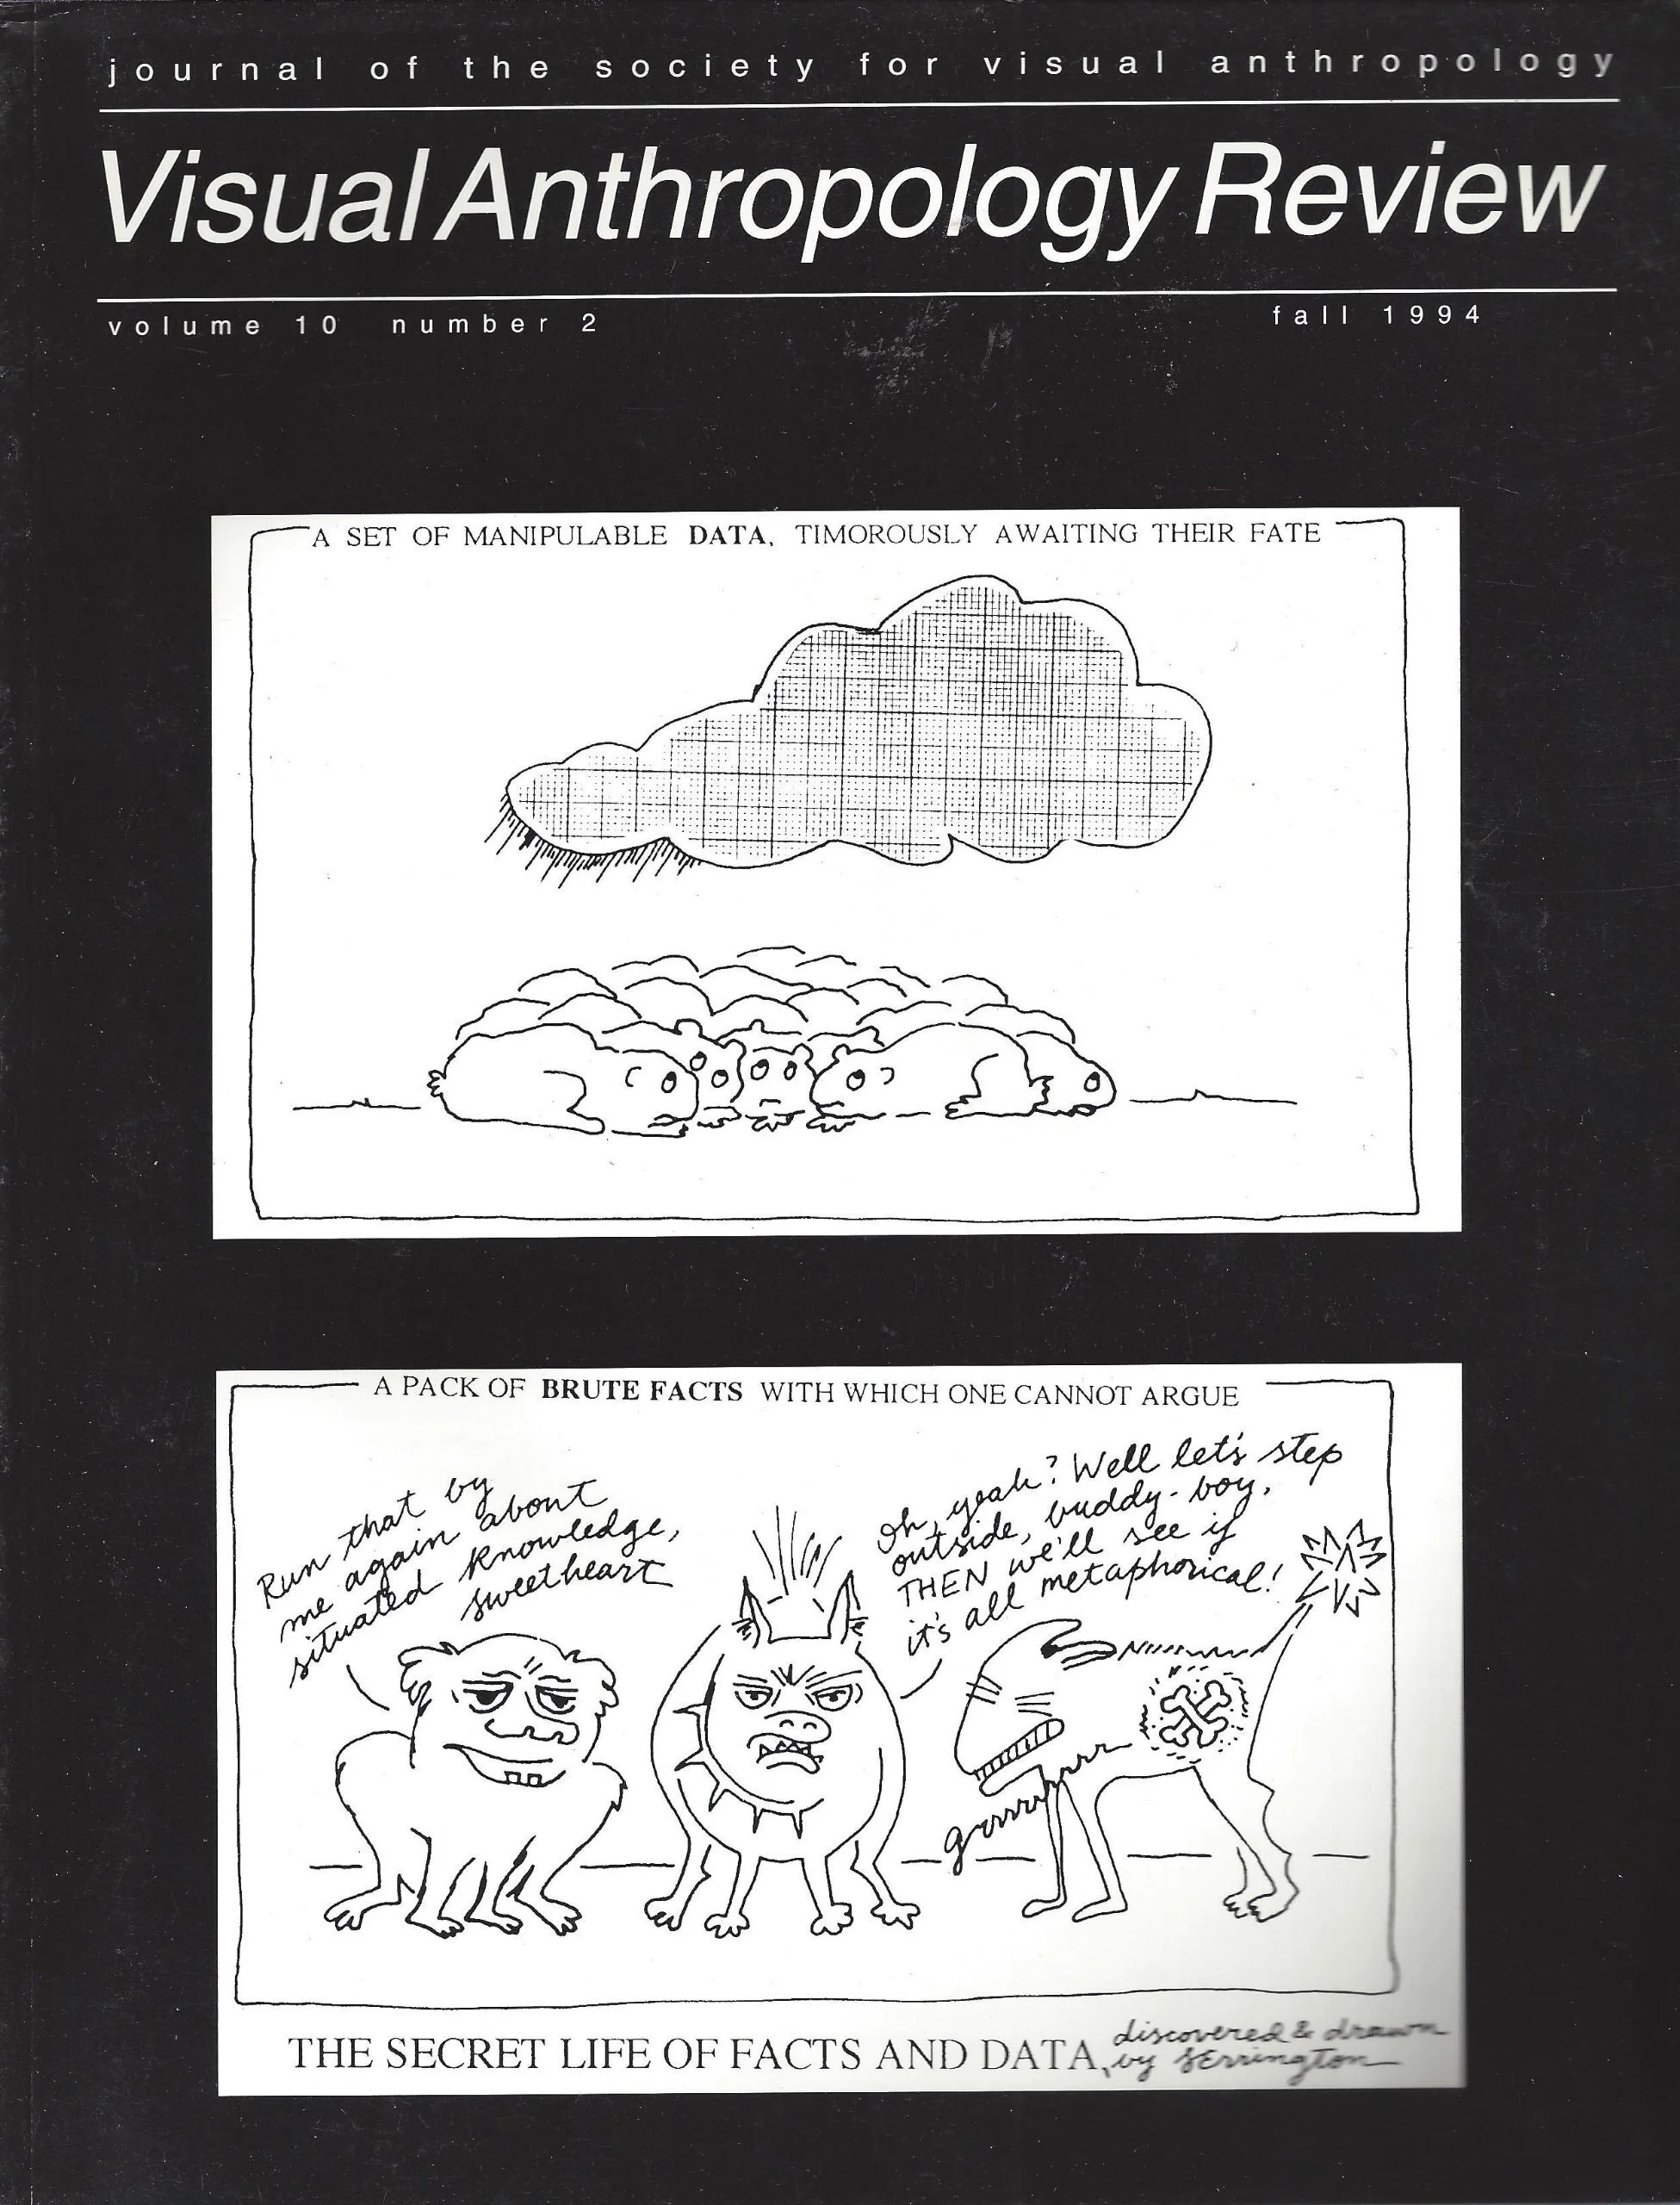 journal of the society for visual anthropology
Visual Anthropology Review
volume 10 number 2
fall 1994
A SET OF MANIPULABLE DATA, TIMOROUSLY AWAITING THEIR FATE
A PACK OF BRUTE FACTS WITH WHICH ONE CANNOT ARGUE
Run that by
me again about
situated knowledge,
sweetheart
Oh, yeah? Well let's step
outside, buddy-boy,
THEN we'll see if
it's all metaphorical!
grrrrrrrrrrr
THE SECRET LIFE OF FACTS AND DATA,
discovered & drawn
by SErrington